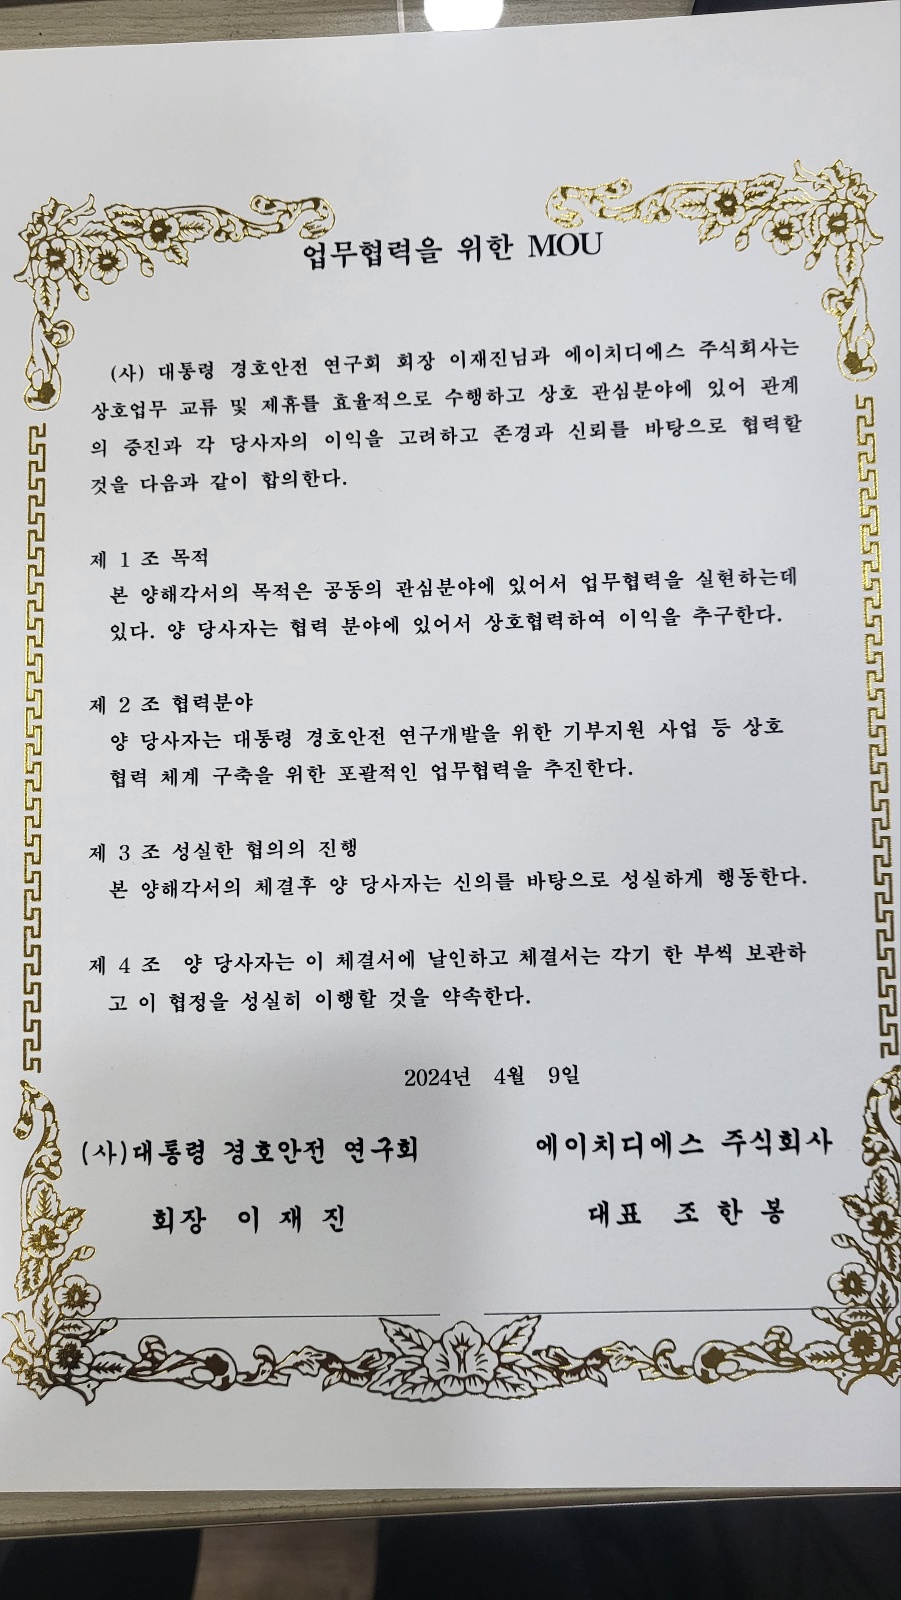 업무협력을 위한 MOU
(사) 대통령 경호안전 연구회 회장 이재진님과 에이치디에스 주식회사는
상호업무 교류 및 제휴를 효율적으로 수행하고 상호 관심분야에 있어 관계
의 증진과 각 당사자의 이익을 고려하고 존경과 신뢰를 바탕으로 협력할
것을 다음과 같이 합의한다.
제 1 조 목적
본 양해각서의 목적은 공동의 관심분야에 있어서 업무협력을 실현하는데
있다. 양 당사자는 협력 분야에 있어서 상호협력하여 이익을 추구한다.
제 2 조 협력분야
양 당사자는 대통령 경호안전 연구개발을 위한 기부지원 사업 등 상호
협력 체계 구축을 위한 포괄적인 업무협력을 추진한다.
제 3 조 성실한 협의의 진행
본 양해각서의 체결후 양 당사자는 신의를 바탕으로 성실하게 행동한다.
제 4 조 양 당사자는 이 체결서에 날인하고 체결서는 각기 한 부씩 보관하
고 이 협정을 성실히 이행할 것을 약속한다.
2024년 4월 9일
(사)대통령 경호안전 연구회 에이치디에스 주식회사
회장 이 재 진 대표 조 한 봉